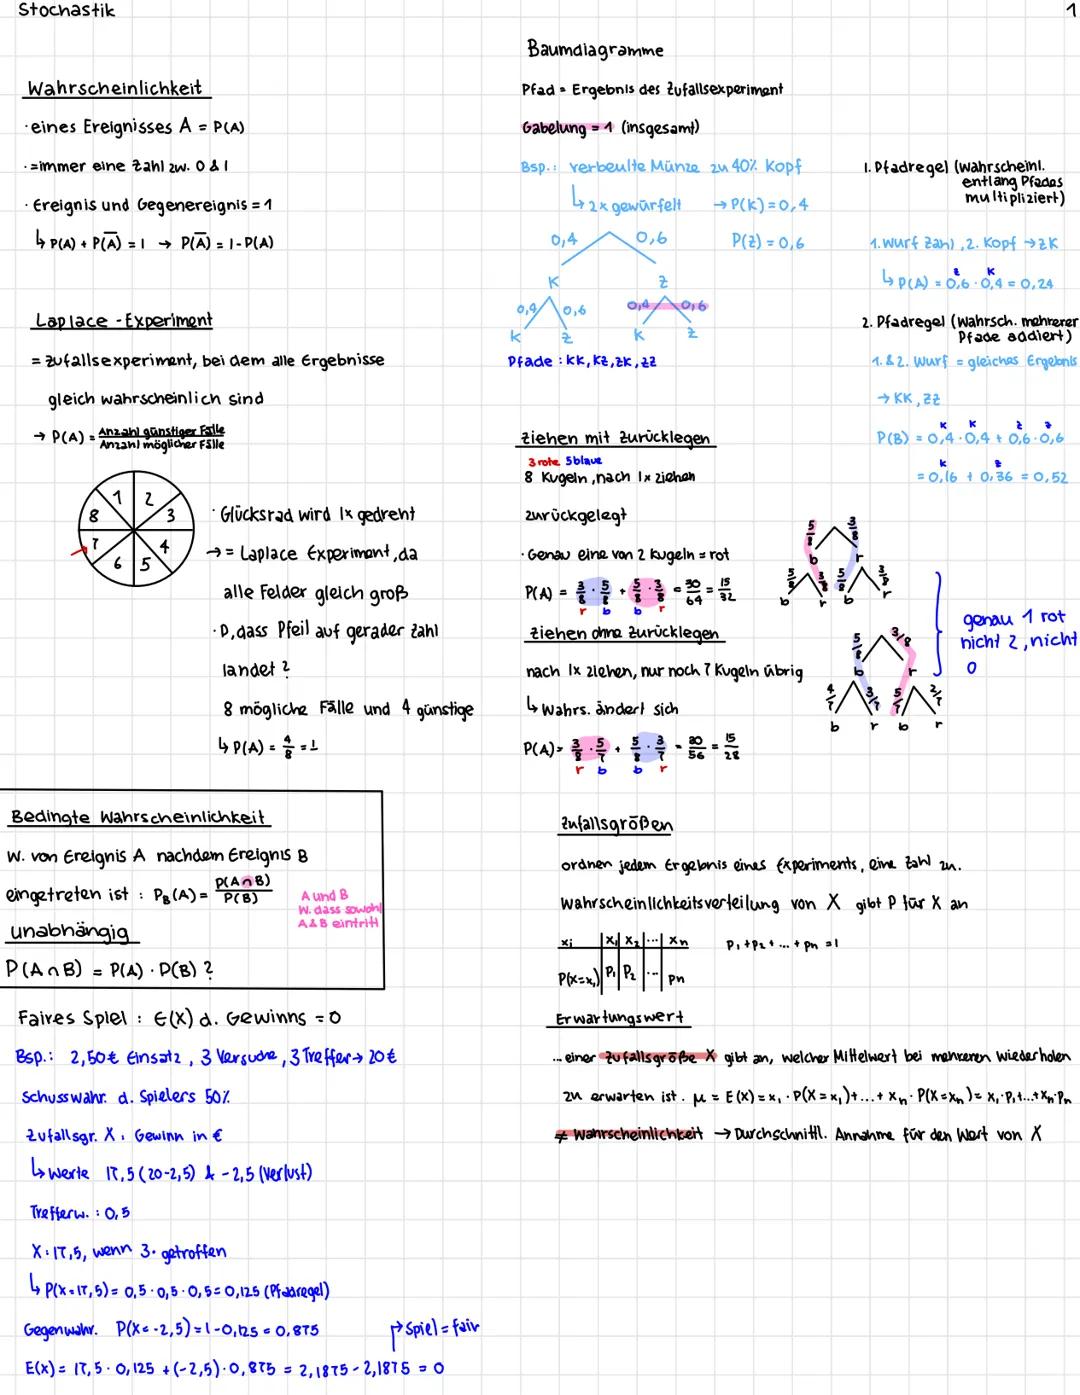 Stochastik
1
Wahrscheinlichkeit
· eines Ereignisses A = P(A)
· = immer eine Zahl zw. 0 & 1
· Ereignis und Gegenereignis = 1
↳ P(A) + P(A̅) = 1 → P(A̅) = 1 - P(A)
Laplace - Experiment
= Zufallsexperiment, bei dem alle Ergebnisse
gleich wahrscheinlich sind
→ P(A) = Anzahl günstiger Fälle / Anzahl möglicher Fälle
1 2 3 4 5 6 7 8
· Glücksrad wird 1x gedreht
→ = Laplace Experiment, da
alle Felder gleich groß
· P, dass Pfeil auf gerader Zahl
landet ?
8 mögliche Fälle und 4 günstige
↳ P(A) = 4/8 = 1
Bedingte Wahrscheinlichkeit
W. von Ereignis A nachdem Ereignis B
eingetreten ist : P_B(A) = P(A∩B) / P(B)
A und B
W. dass sowohl
A & B eintritt
unabhängig
P(A∩B) = P(A) · P(B) ?
Faires Spiel : E(X) d. Gewinns = 0
Bsp.: 2,50€ Einsatz, 3 Versuche, 3 Treffer → 20€
Schusswahr. d. Spielers 50%
Zufallsgr. X: Gewinn in €
↳ Werte 17,5 (20-2,5) & -2,5 (Verlust)
Trefferw. : 0,5
X: 17,5, wenn 3. getroffen
↳ P(X=17,5) = 0,5 · 0,5 · 0,5 = 0,125 (Pfadregel)
Gegenwahr. P(X=-2,5) = 1-0,125 = 0,875
↱ Spiel = fair
E(X) = 17,5 · 0,125 + (-2,5) · 0,875 = 2,1875 - 2,1875 = 0
Baumdiagramme
Pfad = Ergebnis des Zufallsexperiment
Gabelung = 1 (insgesamt)
Bsp.: verbeulte Münze zu 40% Kopf
↳ 2x gewürfelt → P(K) = 0,4
P(Z) = 0,6
0,4 0,6
K Z
0,4 0,6 0,4 0,6
K Z K Z
Pfade : KK, KZ, ZK, ZZ
1. Pfadregel (Wahrscheinl.
entlang Pfades
multipliziert)
1. Wurf Zahl, 2. Kopf → ZK
Z K
↳ P(A) = 0,6 · 0,4 = 0,24
2. Pfadregel (Wahrsch. mehrerer
Pfade addiert)
1. & 2. Wurf = gleiches Ergebnis
→ KK, ZZ
K K Z Z
P(B) = 0,4 · 0,4 + 0,6 · 0,6
K Z
= 0,16 + 0,36 = 0,52
Ziehen mit Zurücklegen
3 rote 5 blaue
8 Kugeln, nach 1x ziehen
zurückgelegt
· Genau eine von 2 Kugeln = rot
P(A) = 3/8 · 5/8 + 5/8 · 3/8 = 30/64 = 15/32
r b b r
5/8 3/8
b r
5/8 3/8 5/8 3/8
b r b r
Ziehen ohne Zurücklegen
nach 1x ziehen, nur noch 7 Kugeln übrig
↳ Wahrs. ändert sich
P(A) = 3/8 · 5/7 + 5/8 · 3/7 = 30/56 = 15/28
r b b r
5/8 3/8
b r
4/7 3/7 5/7 2/7
b r b r
genau 1 rot
nicht 2, nicht
0
Zufallsgrößen
ordnen jedem Ergebnis eines Experiments, eine Zahl zu.
Wahrscheinlichkeitsverteilung von X gibt P für X an
xi | x1 | x2 | ... | xn
P(X=xi) | P1 | P2 | ... | pn
P1 + P2 + ... + pn = 1
Erwartungswert
... einer Zufallsgröße X gibt an, welcher Mittelwert bei mehreren wiederholen
zu erwarten ist. μ = E(X) = x1 · P(X=x1) + ... + xn · P(X=xn) = x1 · P1 + ... + xn · Pn
≠ Wahrscheinlichkeit → Durchschnittl. Annahme für den Wert von X